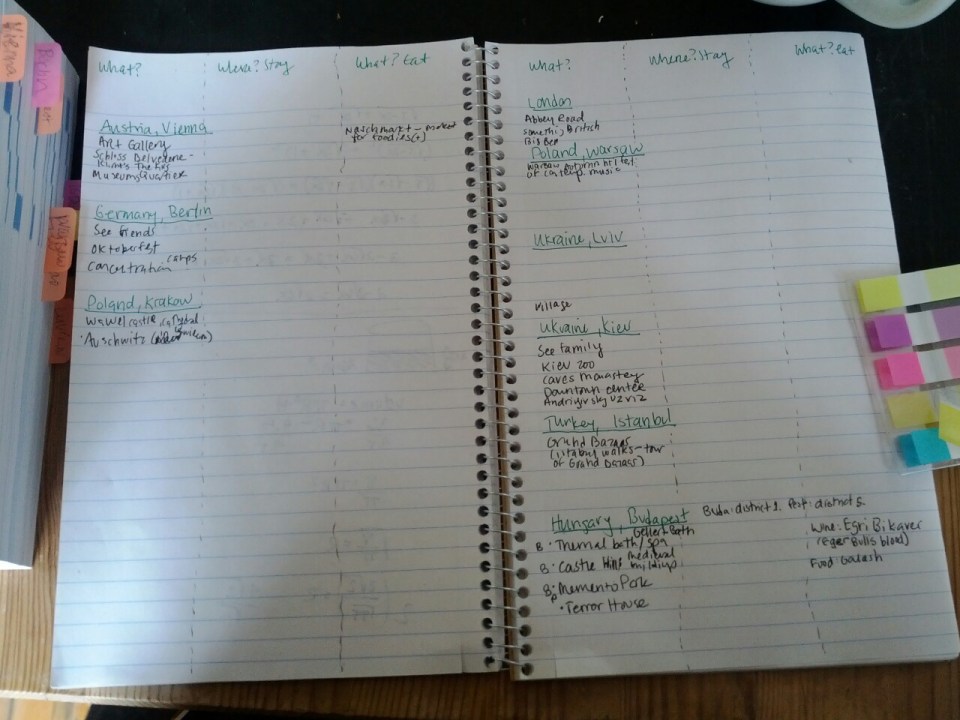 Vienna
Berlin
Warsaw
What?
Where? Stay
What? Eat
Austria, Vienna
Art Gallery
Schloss Belvedere -
Klimt's The Kiss
MuseumsQuartier
Naschmarkt - market
for foodies(+)
Germany, Berlin
See friends
Oktoberfest
Concentration camps
Poland, Krakow
Wawel castle,
Auschwitz
What?
Where? Stay
What? eat
London
Abbey Road
Somethi, British
Big Ben
Poland, Warsaw
Warsaw autumn
of contemp. music
Ukraine, Lviv
Village
Ukraine, Kiev
See Family
Kiev zoo
Caves monastery
Downtown centre
Andriyivsky uzviz
Turkey, Istanbul
Grand Bazaar
(istanbul walks - tour
of Grand Bazaar)
Hungary, Budapest
Buda: district 1. Pest: district 5.
Gellert Bath
B. Thermal bath/spa
B. Castle Hill: medieval
B. Memento Park
P • Terror House
Wine: Egri Bikaver
(eger Bulls blood)
Food: Goulash